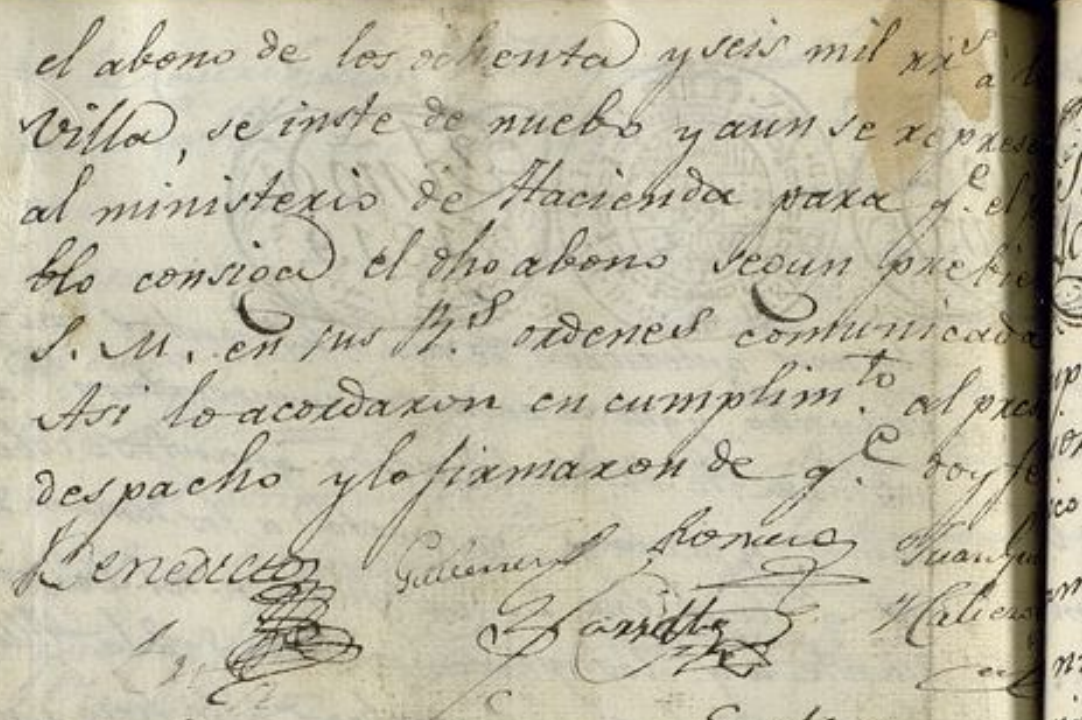 el abono de los ochenta y seis mil rr.s a l
Villa, se inste de nuebo y aun se represe
al ministerio de Hacienda para q.e el p
blo consiga el dho abono segun prebie
S. M. en sus R.s ordenes comunicada
Asi lo acordaron en cumplim.to al pres
despacho y lo firmaron de q.e doy fe
Benedicto Gutierrez Romero Juan